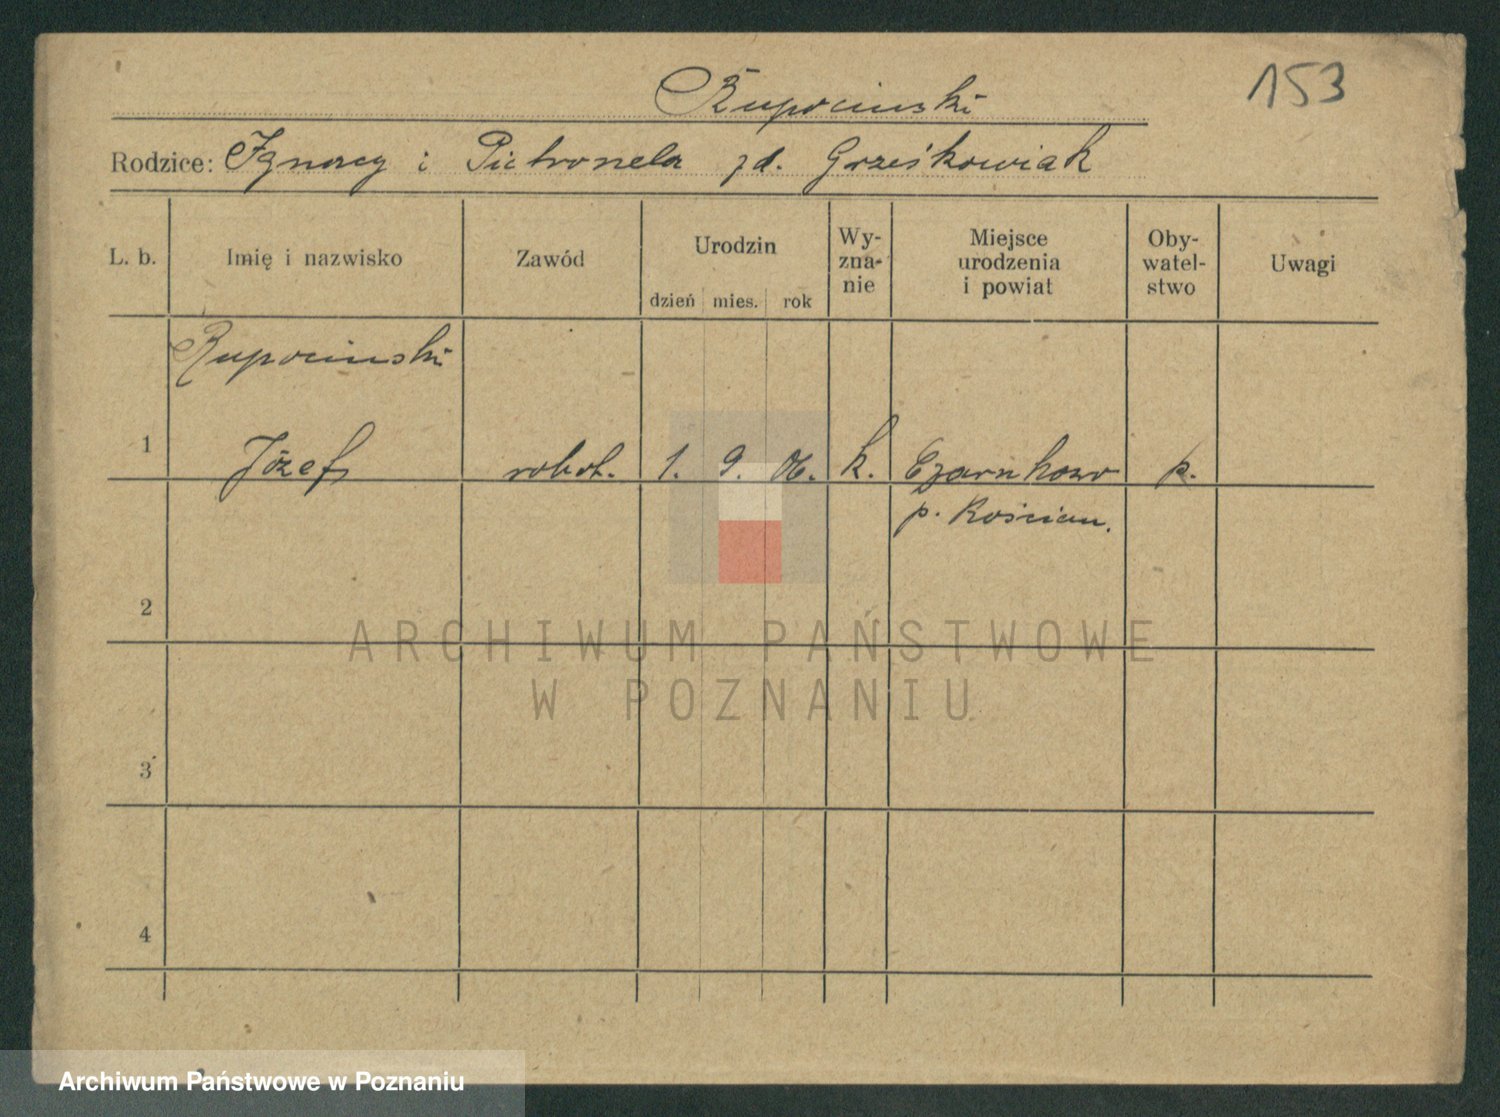 Rupocinski
153
Rodzice: Ignacy i Pietronela zd. Grześkowiak
L. b.
Imię i nazwisko
Zawód
Urodzin
dzień mies. rok
Wy-
zna-
nie
Miejsce
urodzenia
i powiat
Oby-
watel-
stwo
Uwagi
Rupocinski
1 Józef robot. 1. 9. 06. k. Czarnkowo p.
p. Kościan.
2
ARCHIWUM PAŃSTWOWE
W POZNANIU
3
4
Archiwum Państwowe w Poznaniu